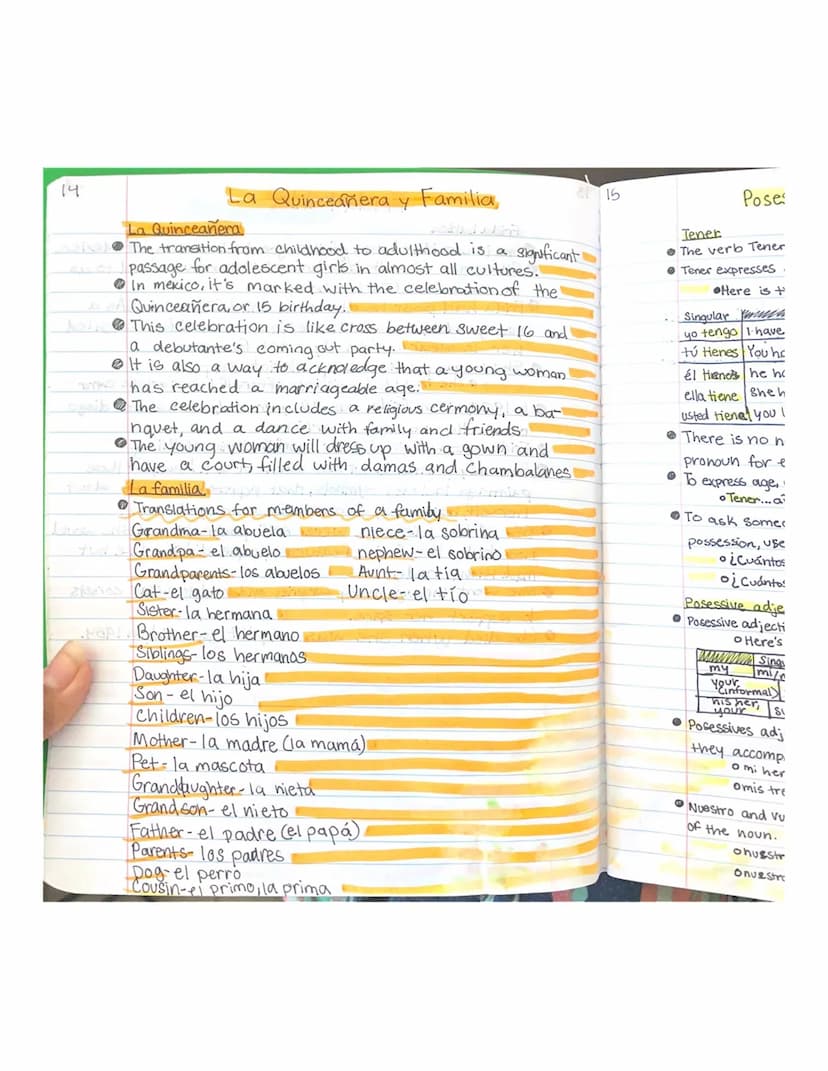 14
La Quinceañera y Familia
La Quinceañera
The transition from childhood to adulthood is a significant
passage for adolescent girls in almost all cultures.
In mexico, it's marked with the celebration of the
Quinceañera, or 15 birthday.
This celebration is like cross between sweet 16 and
a debutante's coming out party.
It is also a way to acknoledge that a young woman
has reached a marriageable age.
The celebration includes a religious cermony, a ba-
nquet, and a dance with family and friends
The young woman will dress up with a gown and
have a court, filled with damas and Chambalanes
La familia
Translations for members of a family
Grandma- la abuela niece- la sobrina
Grandpa- el abuelo nephew- el sobrino
Grandparents- los abuelos Aunt- la tia
Cat- el gato Uncle- el tío
Sister- la hermana
Brother- el hermano
Siblings- los hermanos
Daughter- la hija
Son- el hijo
Children- los hijos
Mother- la madre (la mamá)
Pet- la mascota
Granddaughter- la nieta
Grandson- el nieto
Father- el padre (el papá)
Parents- los padres
Dog- el perro
Cousin- el primo, la prima
15
Tener
The verb Tener
Tener expresses
Here is
Singular
yo tengo I have
tú tienes You
él tiene he
ella tiene she
usted tiene you
There is no
pronoun for
To express age,
Tener...
To ask
possession, use
¿Cuántos
¿Cuánto
Posessive
Posessive
Here's
my mi/
your (informal)
his, her, your
Posessives
they
mi
mis
Nuestro and
of the noun.